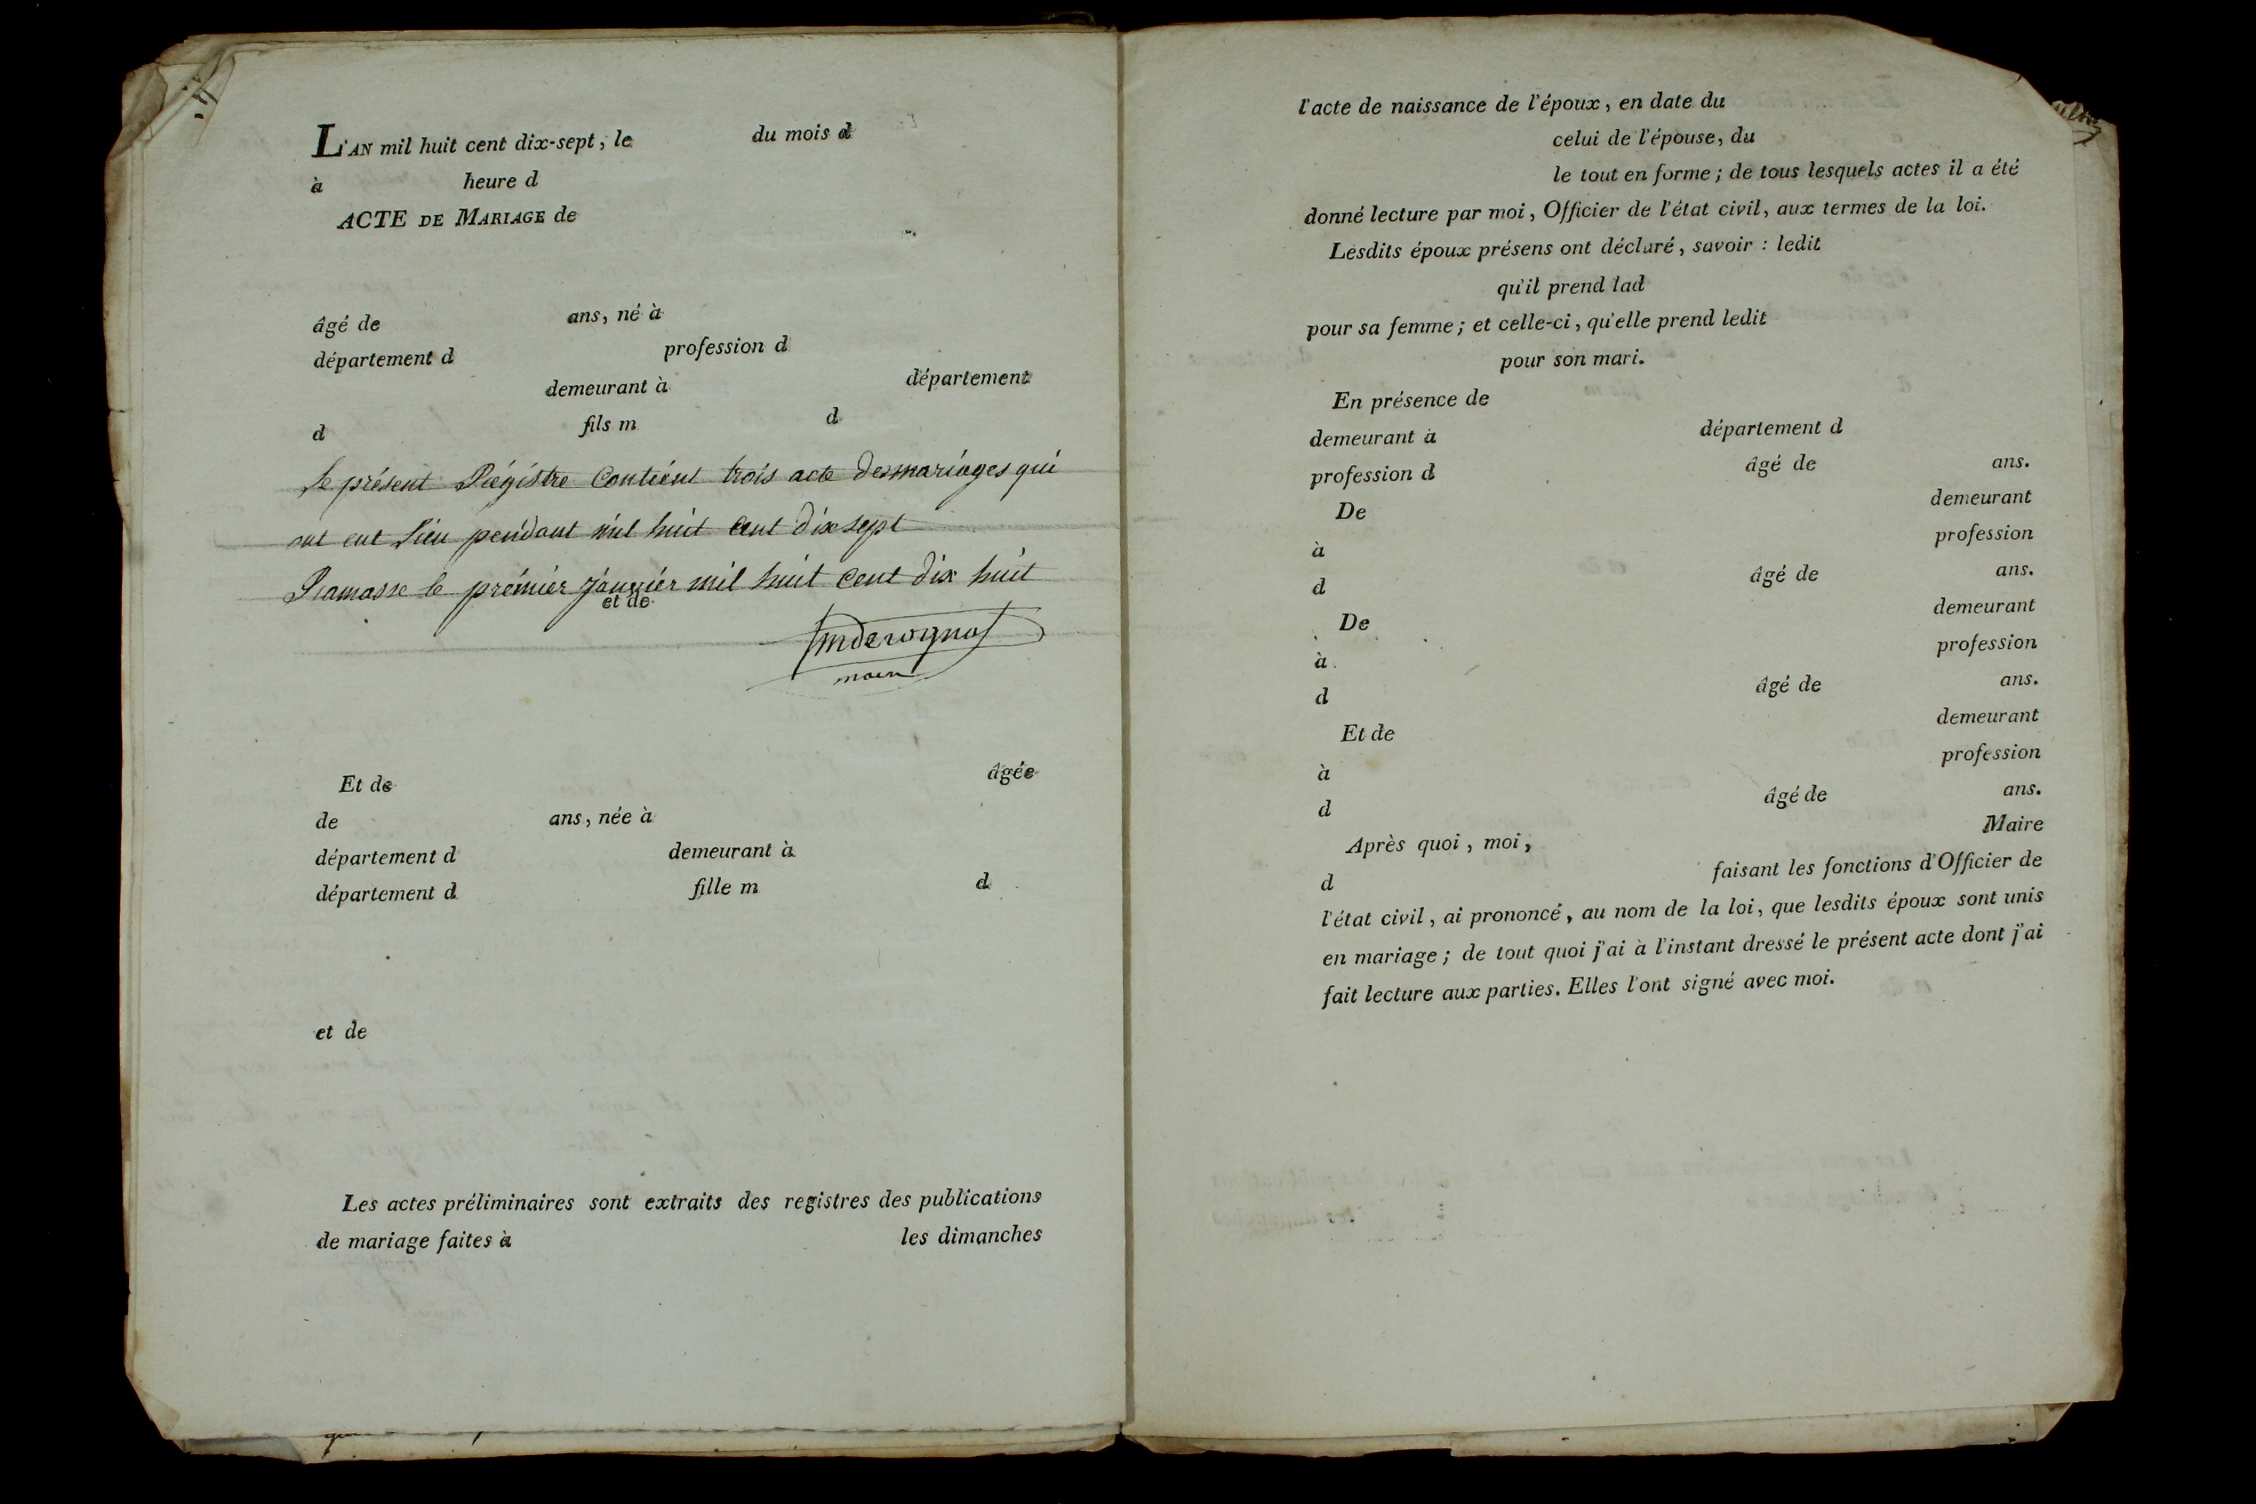 L'AN mil huit cent dix-sept, le du mois d
à heure d
ACTE DE MARIAGE de
âgé de ans, né à
département d profession d
demeurant à département
d fils m d
le présent Régistre Contient trois acte des mariages qui
ont eut Lieu pendant mil huit Cent dix sept
Ramasse le prémier janvier mil huit Cent dix huit
et de
maire
Et de âgée
de ans, née à
département d demeurant à
département d fille m d
et de
Les actes préliminaires sont extraits des registres des publications
de mariage faites à les dimanches
l'acte de naissance de l'époux, en date du
celui de l'épouse, du
le tout en forme; de tous lesquels actes il a été
donné lecture par moi, Officier de l'état civil, aux termes de la loi.
Lesdits époux présens ont déclaré, savoir : ledit
qu'il prend lad
pour sa femme; et celle-ci, qu'elle prend ledit
pour son mari.
En présence de
demeurant à département d
profession d âgé de ans.
De demeurant
à profession
d âgé de ans.
De demeurant
à profession
d âgé de ans.
Et de demeurant
à profession
d âgé de ans.
Après quoi, moi, Maire
d faisant les fonctions d'Officier de
l'état civil, ai prononcé, au nom de la loi, que lesdits époux sont unis
en mariage; de tout quoi j'ai à l'instant dressé le présent acte dont j'ai
fait lecture aux parties. Elles l'ont signé avec moi.